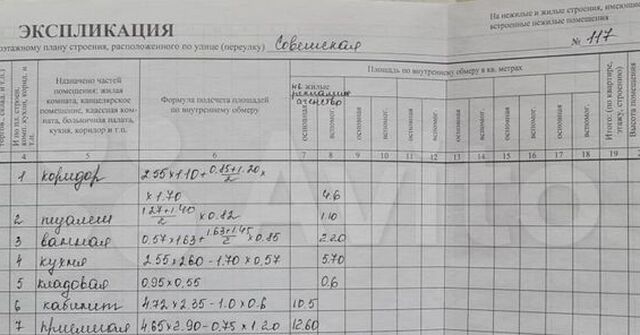 ЭКСПЛИКАЦИЯ
На нежилые и жилые строения, имеющ
встроенные нежилые помещения
оэтажному плану строения, расположенного по улице (переулку) Советская
№ 117
Назначено частей помещения: жилая комната, канцелярское помещение, классная комната, больничная палата, кухня, коридор и т.п.
Формула подсчета площадей по внутреннему обмеру
Площадь по внутреннему обмеру в кв. метрах
не жилые
рекламное
агенство
основная вспомог. основная вспомог. основная вспомог. основная вспомог. основная вспомог. основная вспомог.
Итого: (по квартире, этажу, строению)
Высота помещения
4 5 6 7 8 9 10 11 12 13 14 15 16 17 18 19
1 коридор 2.55×1.10+0.85+1.20/2×
×1.70 4.6
2 туалет 1.27+1.40/2×0.82 1.10
3 ванная 0.57×1.63+1.63+1.45/2×0.85 2.20
4 кухня 2.55×2.60-1.70×0.57 5.70
5 кладовая 0.95×0.55 0.6
6 кабинет 4.72×2.35-1.0×0.6 10.5
7 приемная 4.65×2.90-0.75×1.20 12.60
Avito